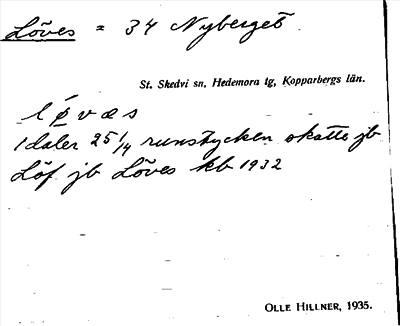 Löves = 34 Nyberget.
St. Skedvi sn, Hedemora tg, Kopparbergs län.
lø̀væs
1 daler 25 1/4 runstycken skatte jb
Löf jb Löves kb 1932
OLLE HILLNER, 1935.